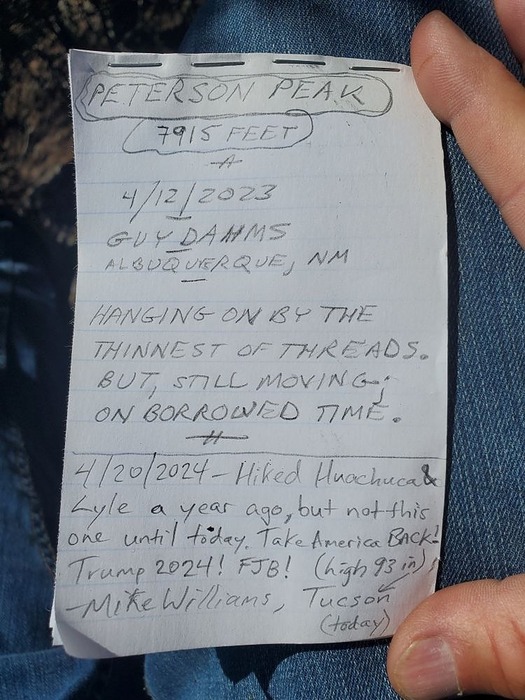 PETERSON PEAK
7915 FEET
4/12/2023
GUY DAHMS
ALBUQUERQUE, NM
HANGING ON BY THE
THINNEST OF THREADS.
BUT, STILL MOVING;
ON BORROWED TIME.
4/20/2024 - Hiked Huachuca &
Lyle a year ago, but not this
one until today. Take America BACK!
Trump 2024! FJB! (high 93 in)
- Mike Williams, Tucson
(today)